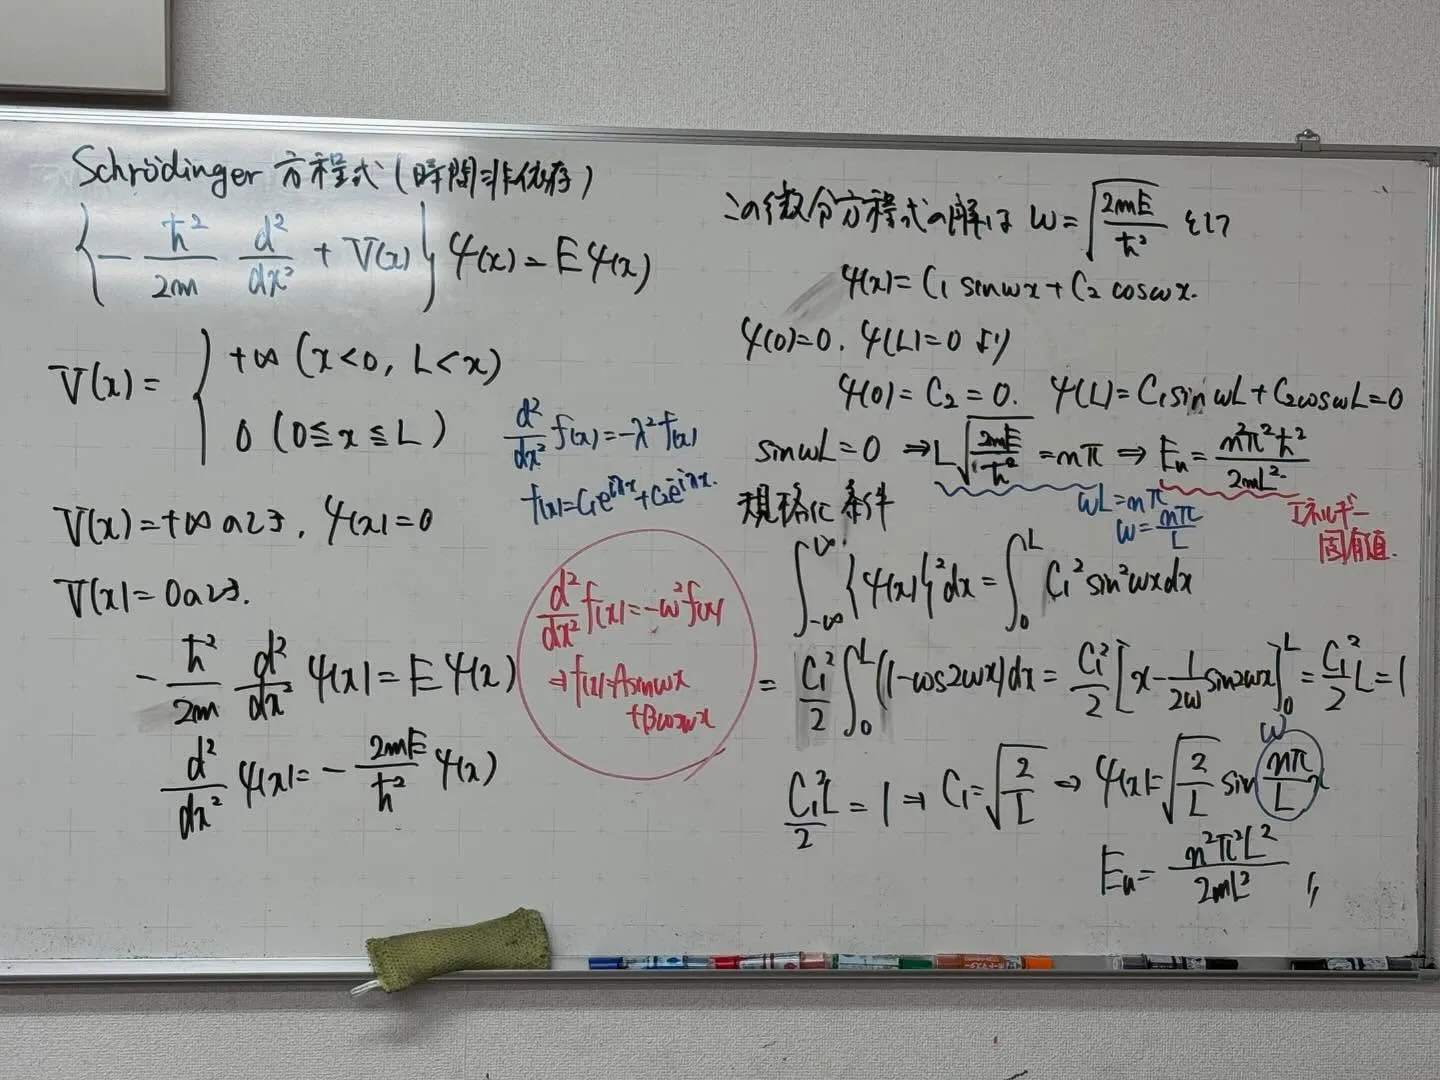 Schrödinger 方程式 (時間非依存)
{-ħ²/2m d²/dx² + V(x)} ψ(x) = E ψ(x)
V(x) = { +∞ (x<0, L<x)
0 (0≦x≦L)
d²/dx² f(x) = -λ² f(x)
f(x) = C₁e^{iλx} + C₂e^{-iλx}.
V(x) = +∞ のとき, ψ(x) = 0
V(x) = 0 のとき.
-ħ²/2m d²/dx² ψ(x) = E ψ(x)
d²/dx² ψ(x) = - 2mE/ħ² ψ(x)
d²/dx² f(x) = -ω² f(x)
⇒ f(x) = A sin ωx
+ B cos ωx
この微分方程式の解は ω = √(2mE/ħ²) として
ψ(x) = C₁ sin ωx + C₂ cos ωx.
ψ(0) = 0, ψ(L) = 0 より
ψ(0) = C₂ = 0. ψ(L) = C₁ sin ωL + C₂ cos ωL = 0
sin ωL = 0 ⇒ L√(2mE/ħ²) = nπ ⇒ Eₙ = n²π²ħ²/2mL²
ωL = nπ
ω = nπ/L
エネルギー
固有値.
規格化条件
∫_{-∞}^{∞} {ψ(x)}² dx = ∫_0^L C₁² sin² ωx dx
= C₁²/2 ∫_0^L (1 - cos 2ωx) dx = C₁²/2 [x - 1/2ω sin 2ωx]_0^L = C₁²/2 L = 1
C₁²L/2 = 1 ⇒ C₁ = √(2/L) ⇒ ψ(x) = √(2/L) sin nπ/L x
ω
Eₙ = n²π²L²/2mL²